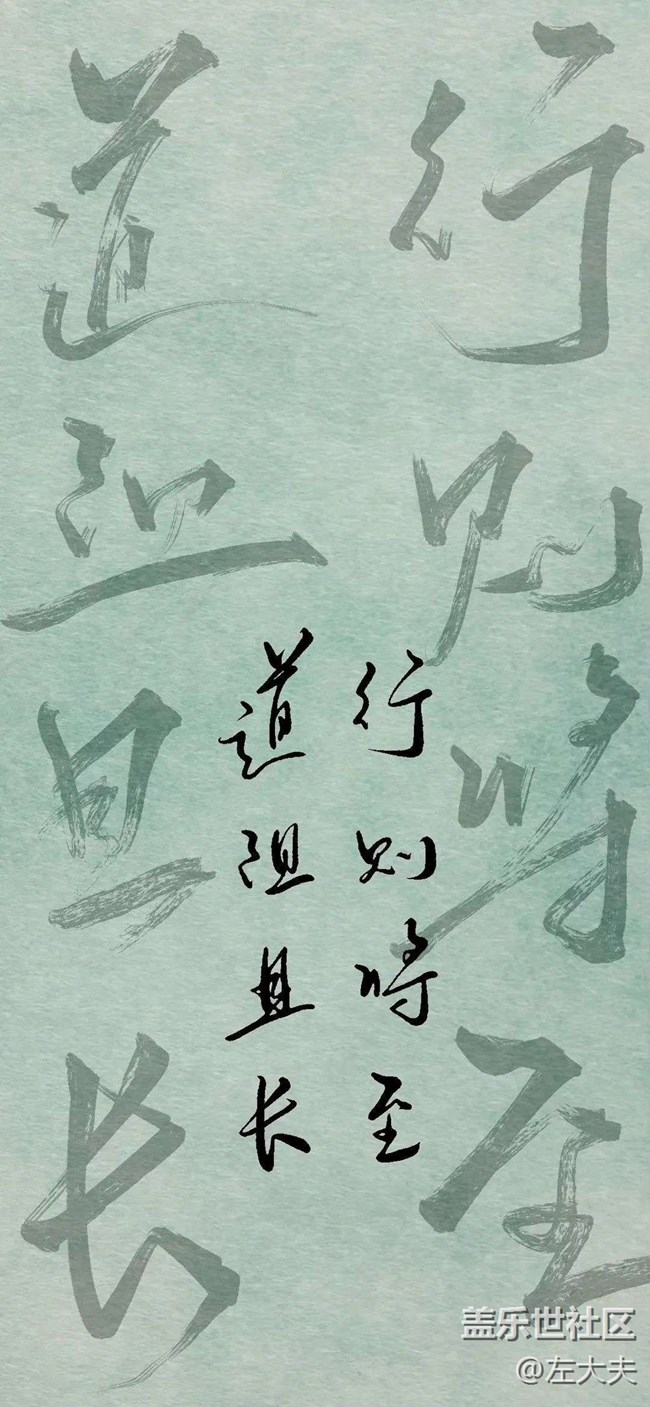 道阻且长
行则将至
道阻且长
行则将至
盖乐世社区
@左大夫